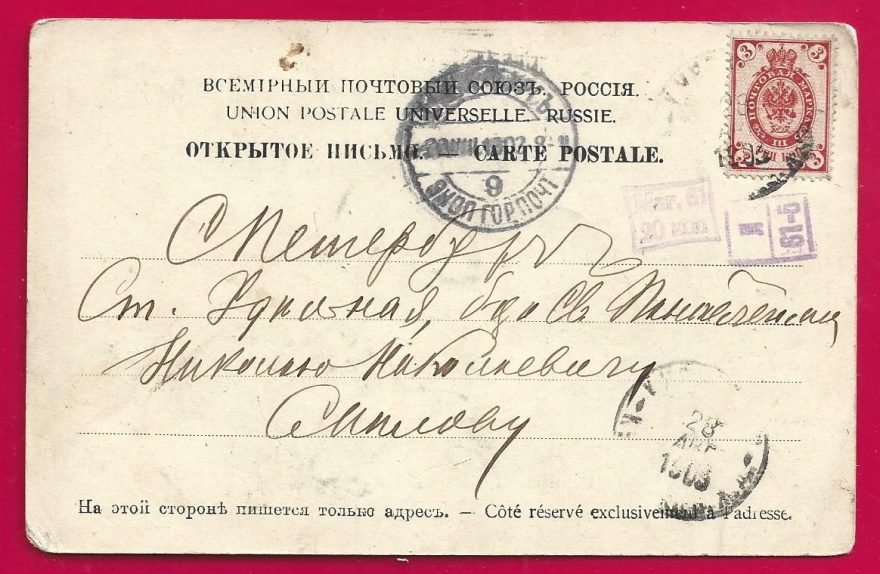 ВСЕМІРНЫЙ ПОЧТОВЫЙ СОЮЗЪ. РОССІЯ.
UNION POSTALE UNIVERSELLE. RUSSIE.
ОТКРЫТОЕ ПИСЬМО. — CARTE POSTALE.
3 3
ПОЧТОВАЯ МАРКА
III
3 3
1903
1903 8
9
ГОР ПОЧТ
Маг. 61
20 коп
Л
61-5
СПетербургъ
Ст. Удѣльная,
Николаю Николаевичу
Смилову
28
АВГ
1903
На этой сторонѣ пишется только адресъ. — Côté réservé exclusivement à l'adresse.